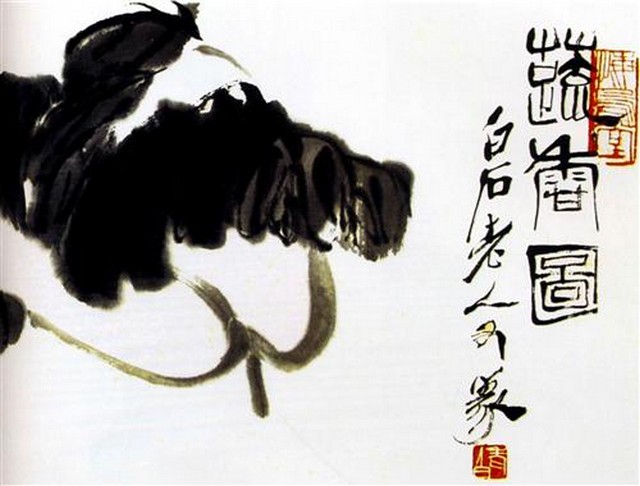 蔬香圖
白石老人又篆